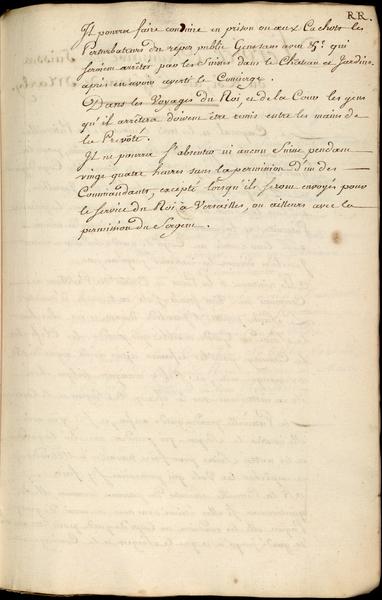 RR.
Il pourra faire conduire en prison ou aux Cachots les
Perturbateurs du repos public Gens sans aveu &c. qui
seroient arrêtés par les Suisses dans le Chateau et Jardins
après en avoir averti le Concierge.
Dans les Voyages du Roi et de la Cour les gens
qu'il arrêtera doivent être remis entre les mains de
la Prevôté.
Il ne pourra s'absenter ni aucun Suisse pendant
vingt quatre heures sans la permission d'un des
Commandants, excepté lorsqu'ils seront envoyés pour
le service du Roi à Versailles, ou ailleurs avec la
permission du Sergent.